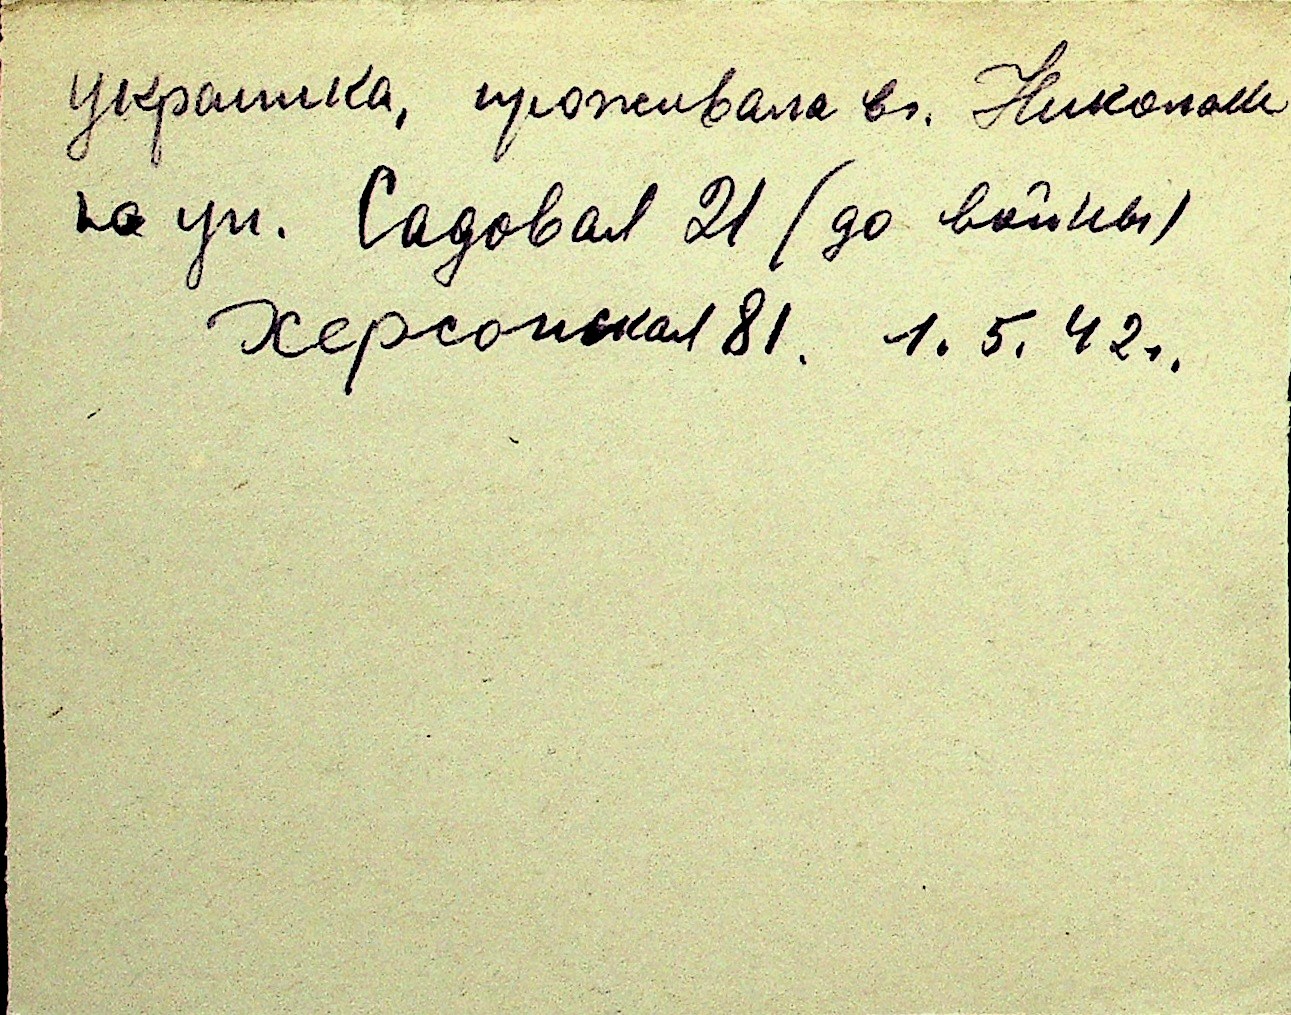 украинка, проживала в г. Николаеве
на ул. Садовая 21 (до войны)
Херсонская 81. 1.5.42г.